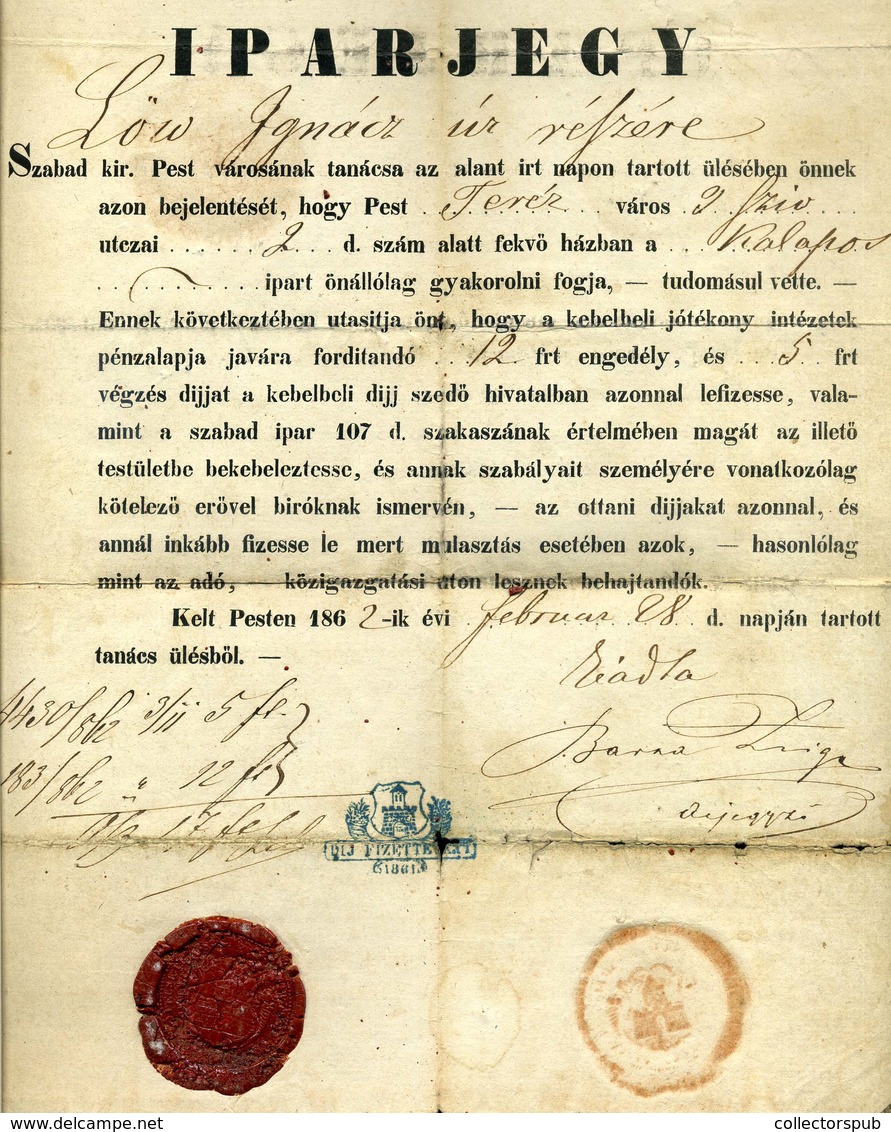 IPARJEGY
Löw Ignácz úr részére
Szabad kir. Pest városának tanácsa az alant irt napon tartott ülésében önnek
azon bejelentését, hogy Pest Teréz város 2 Sziv
utczai 2 d. szám alatt fekvö házban a Kalapos
ipart önállólag gyakorolni fogja, — tudomásul vette. —
Ennek következtében utasitja önt, hogy a kebelbeli jótékony intézetek
pénzalapja javára forditandó 12 frt engedély, és 5 frt
végzés dijjat a kebelbeli dijj szedö hivatalban azonnal lefizesse, vala-
mint a szabad ipar 107 d. szakaszának értelmében magát az illetö
testületbe bekebeleztesse, és annak szabályait személyére vonatkozólag
kötelezö erövel biróknak ismervén, — az ottani dijjakat azonnal, és
annál inkább fizesse le mert mulasztás esetében azok, — hasonlólag
mint az adó, — közigazgatási uton lesznek behajtandók. —
Kelt Pesten 1862-ik évi februar 28 d. napján tartott
tanács ülésböl. —
Kiadta
4430/862 3/II 5 fr.
Barna
183/862 " 12 fr
17
DIJ FIZETTETETT
1861
collectorspub